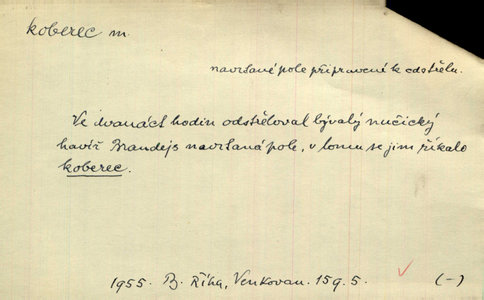 koberec m.
navrtané pole připravené k odstřelu.
Ve dvanáct hodin odstřeloval bývalý nučický
havíř Brandejs navrtaná pole, v lomu se jim říkalo
koberec.
1955. B. Říha, Venkovan. 159. 5. (-)